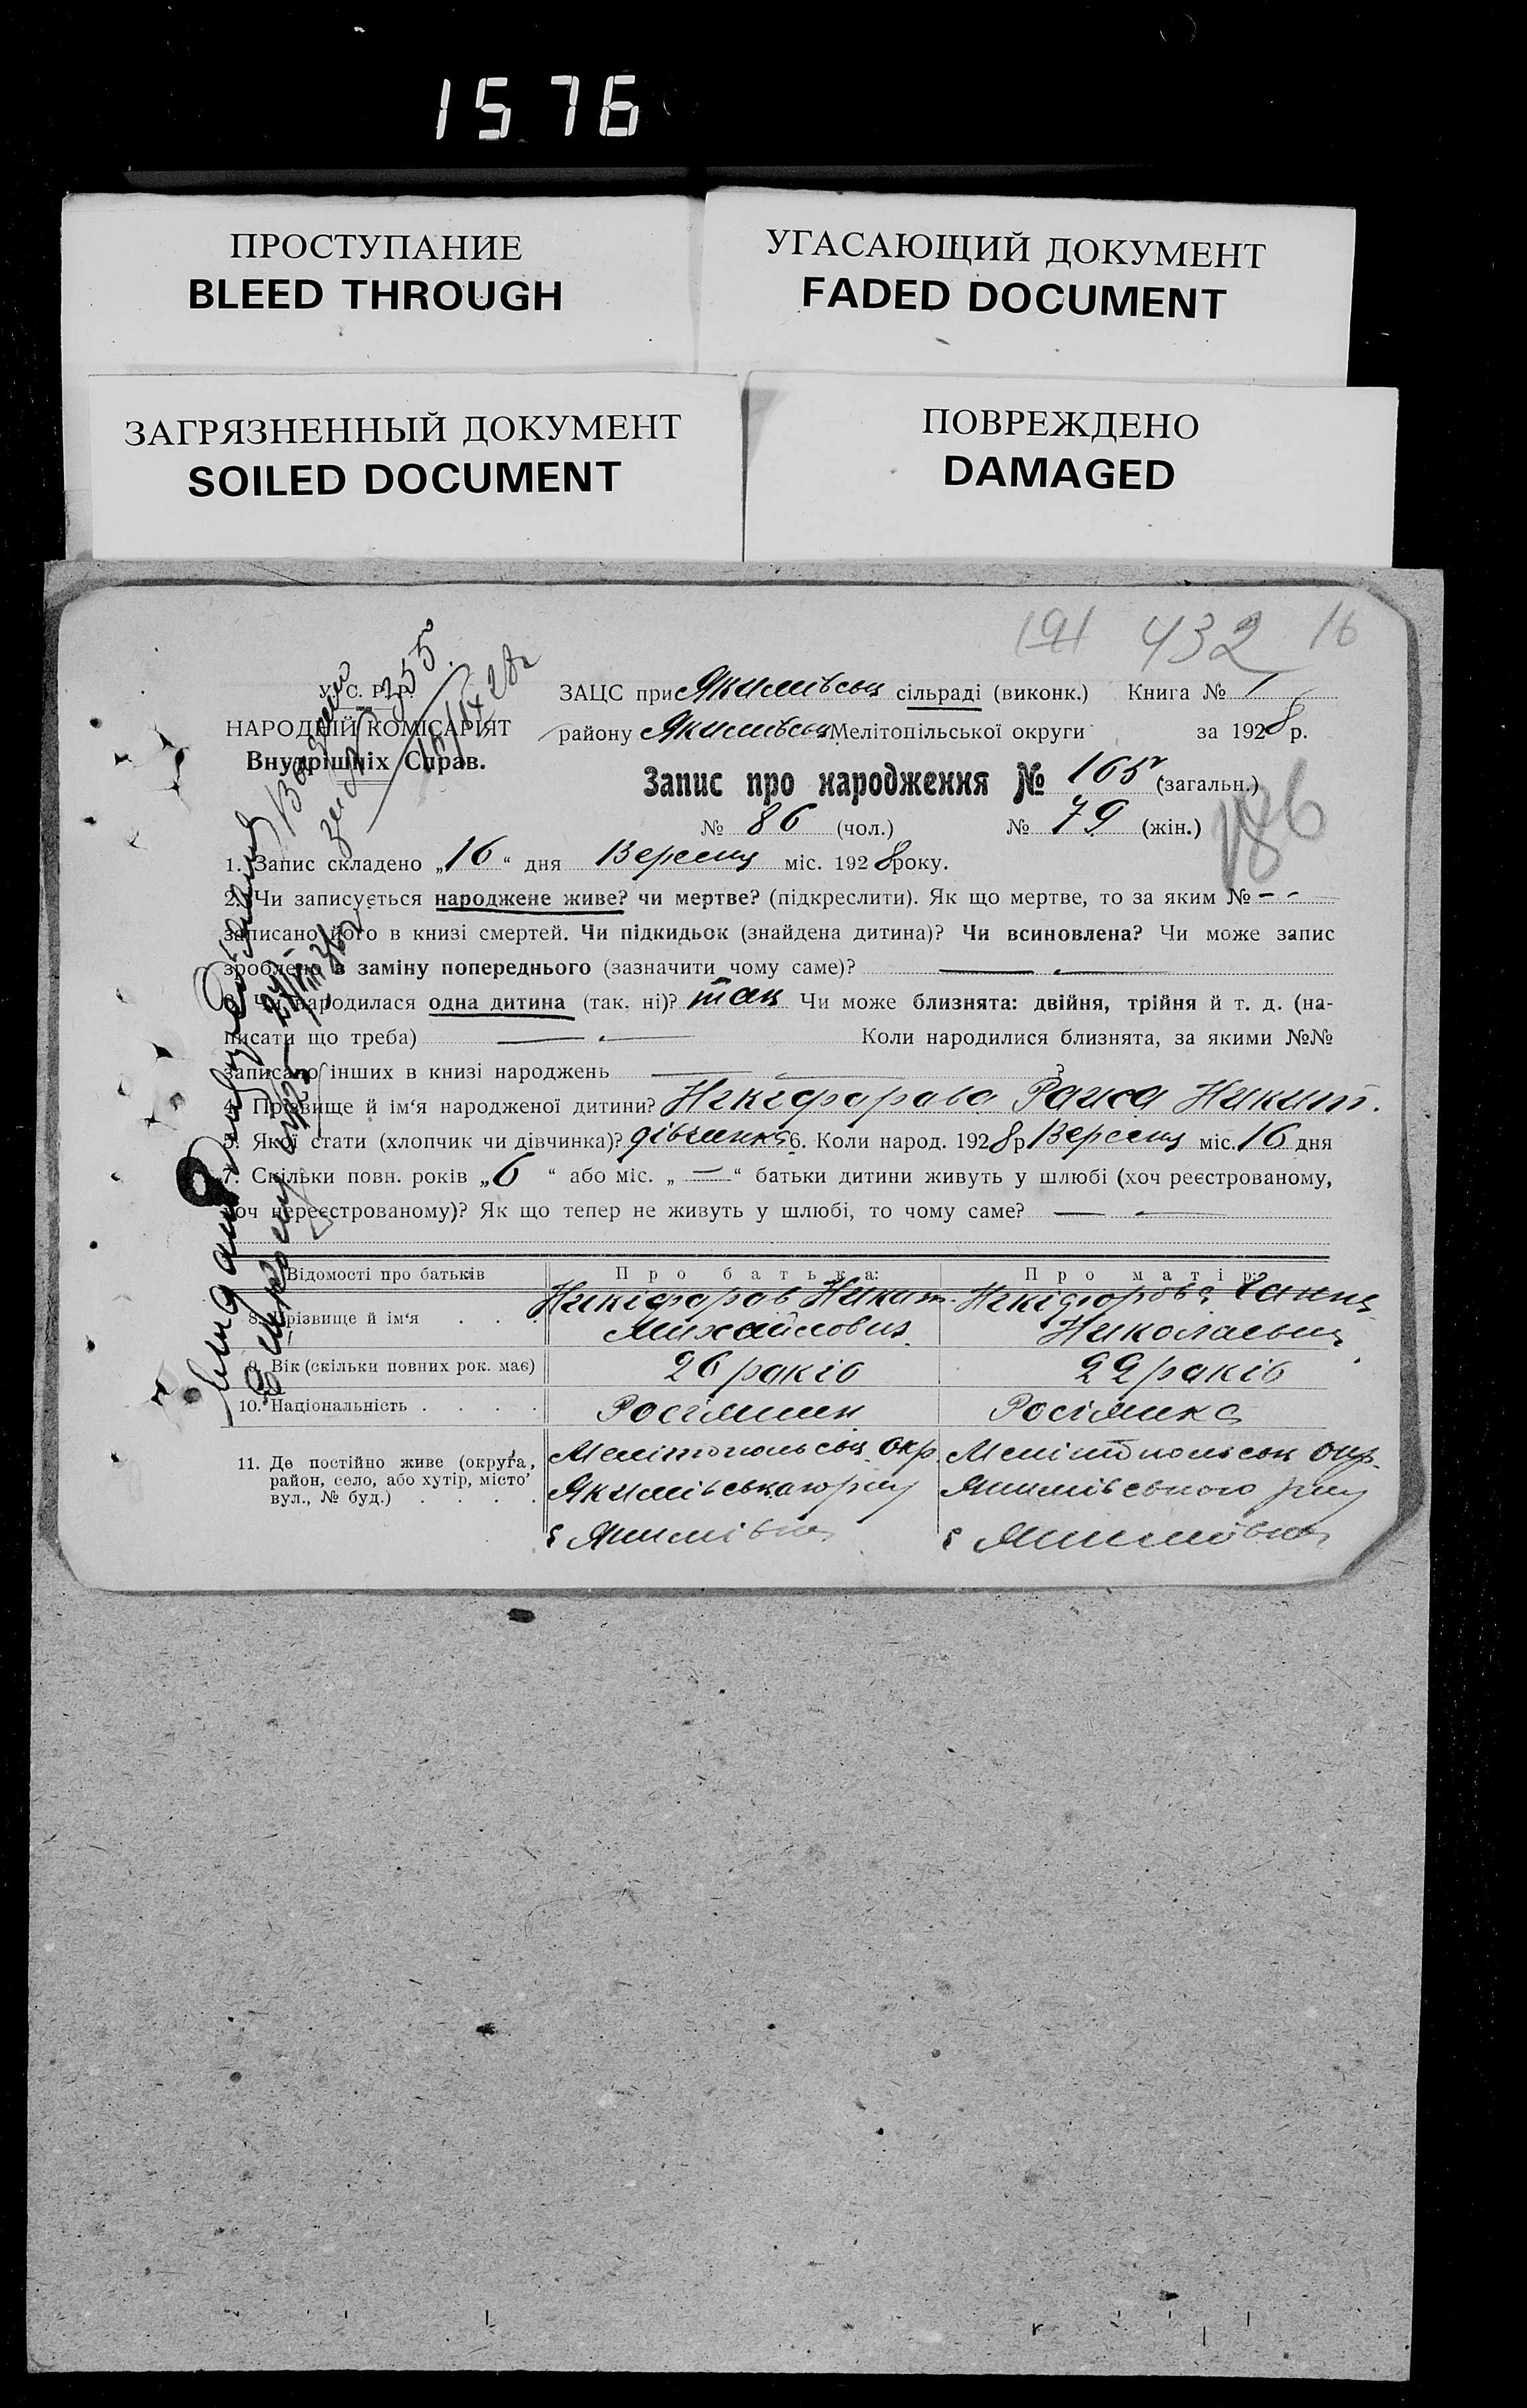 1576
ПРОСТУПАНИЕ
BLEED THROUGH
УГАСАЮЩИЙ ДОКУМЕНТ
FADED DOCUMENT
ЗАГРЯЗНЕННЫЙ ДОКУМЕНТ
SOILED DOCUMENT
ПОВРЕЖДЕНО
DAMAGED
191 432 16
У. С. Р. Р.
НАРОДНІЙ КОМІСАРІЯТ
Внутрішніх Справ.
355
ЗАЦС при Якимівськ сільраді (виконк.) Книга № 1
району Якимівськ Мелітопільської округи за 1928 р.
Запис про народження № 165 (загальн.)
№ 86 (чол.) № 79 (жін.)
186
1. Запис складено „16“ дня Вересня міс. 1928 року.
2. Чи записується народжене живе? чи мертве? (підкреслити). Як що мертве, то за яким № – –
записано його в книзі смертей. Чи підкидьок (знайдена дитина)? Чи всиновлена? Чи може запис
зроблено в заміну попереднього (зазначити чому саме)?
3. Чи народилася одна дитина (так, ні)? так Чи може близнята: двійня, трійня й т. д. (на-
писати що треба) Коли народилися близнята, за якими №№
записано інших в книзі народжень ?
4. Прізвище й ім‘я народженої дитини? Никіфорова Раиса Никит.
5. Якої стати (хлопчик чи дівчинка)? дівчинка 6. Коли народ. 1928 р Вересня міс. 16 дня
7. Скільки повн. років „6“ або міс. „—“ батьки дитини живуть у шлюбі (хоч реєстрованому,
хоч нереєстрованому)? Як що тепер не живуть у шлюбі, то чому саме?
Відомості про батьків Про батька: Про матір:
8. Прізвище й ім‘я . . . Никіфоров Никит. Никіфорова Ганна
Михайлович Николаевна
9. Вік (скільки повних рок. має) 26 років 22 років
10. Національність . . . . Росіянин Росіянка
11. Де постійно живе (округа, Мелітопольськ окр. Мелітопольськ окр.
район, село, або хутір, місто Якимівського р-ну Якимівського р-ну
вул., № буд.) . . . .
с Якимівка с Якимівка